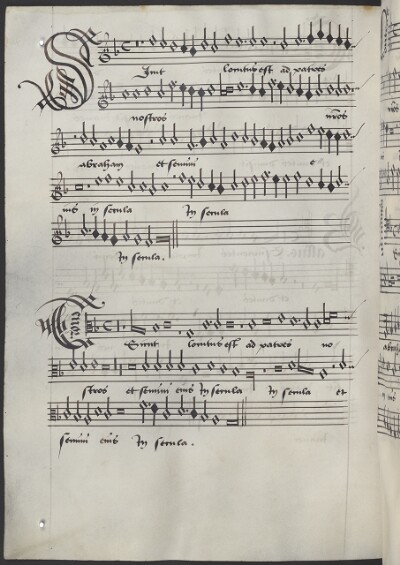 Sicut locutus est ad patres
nostros nr̄os
abraham et semini e
ius in secula In secula
In secula.
Sicut locutus est ad patres no
stros et semini eius In secula In secula et
semini eius In secula.